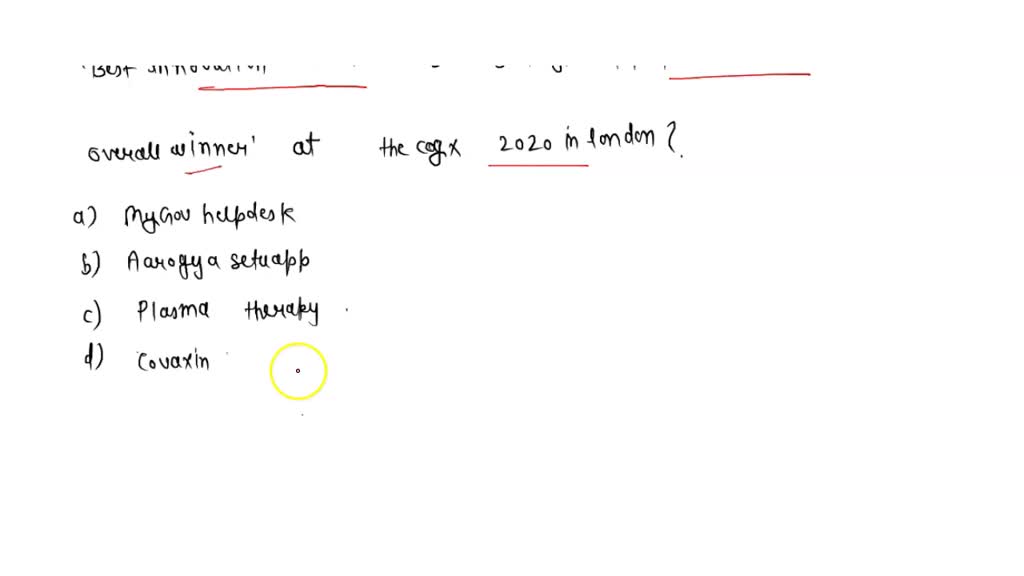 "Best innovation
overall winner' at the cogx 2020 in london?
a) MyGov helpdesk
b) Aarogya setuapp
c) Plasma therapy .
d) Covaxin